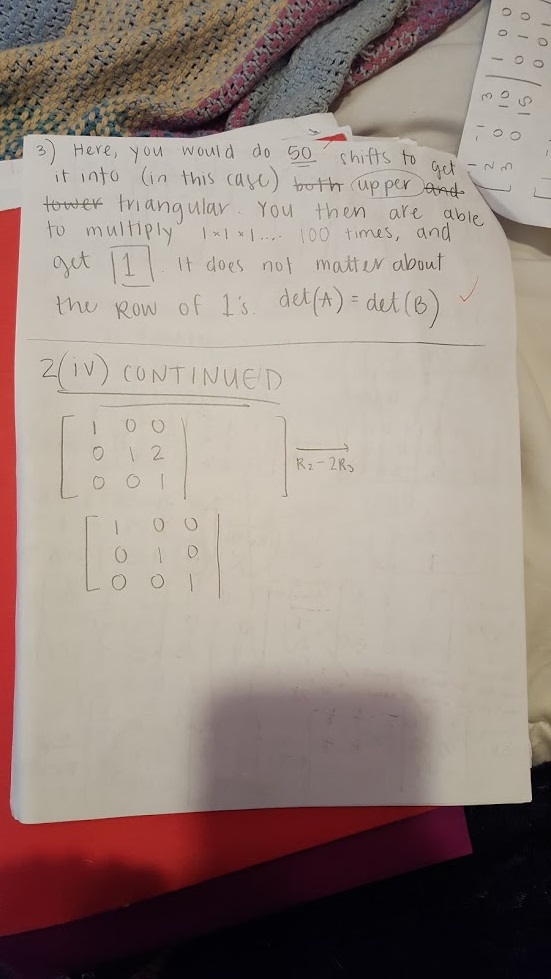 3) Here, you would do 50 shifts to get
it into (in this case) both upper and
lower triangular. You then are able
to multiply 1×1×1... 100 times, and
get 1. It does not matter about
the row of 1's. det(A) = det(B) ✓
2(iv) CONTINUED
1 0 0
0 1 2
0 0 1
R₂-2R₃
1 0 0
0 1 0
0 0 1